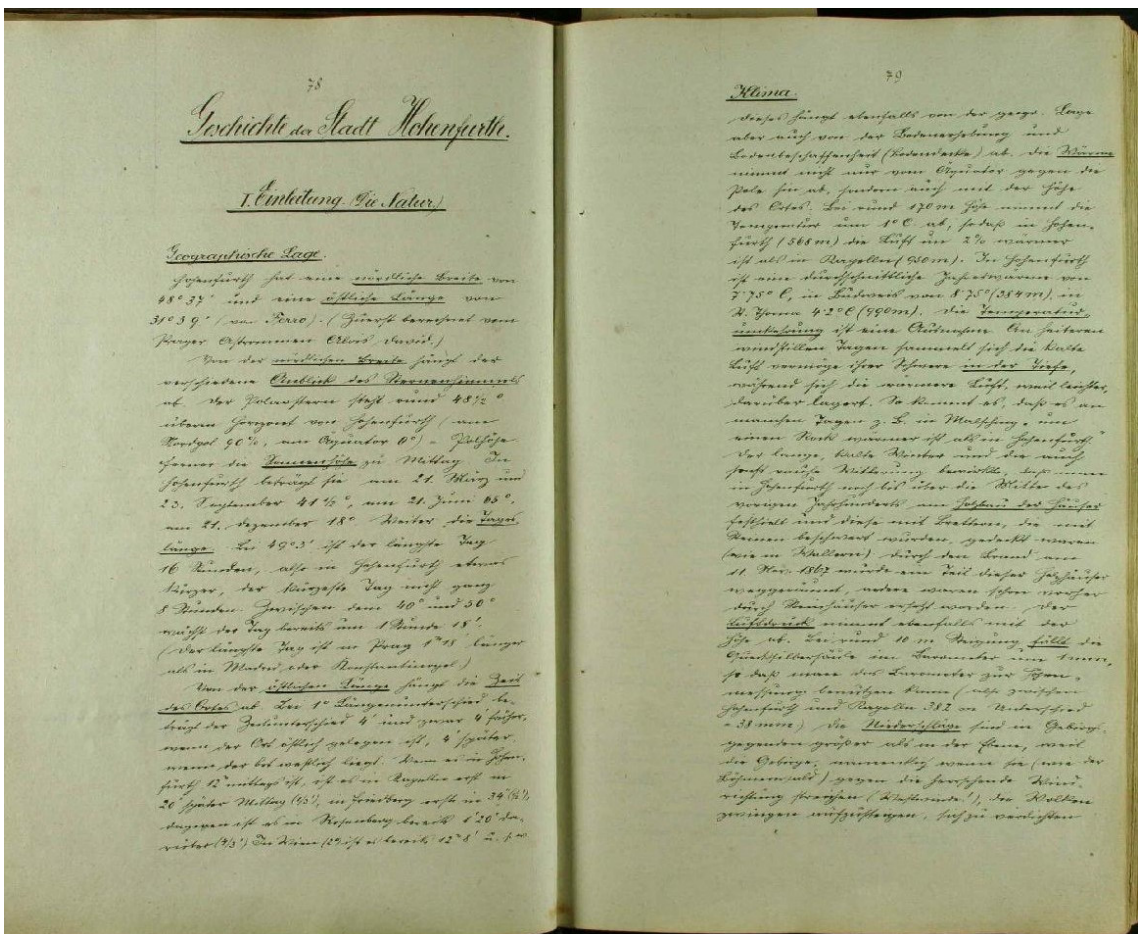 78
Geschichte der Stadt Hohenfurth.
I. Einleitung. (Die Natur.)
Geographische Lage.
Hohenfurth hat eine nördliche Breite von
48° 37' und eine östliche Länge von
31° 39' (von Ferro). (Zuerst berechnet vom
Prager Astronomen Alois David.)
Von der nördlichen Breite hängt der
verschiedene Anblick des Sternenhimmels
ab. Der Polarstern steht rund 48½°
überm Horizont von Hohenfurth (am
Nordpol 90°, am Äquator 0°) = Polhöhe
ferner die Sonnenhöhe zu Mittag. In
Hohenfurth beträgt sie am 21. März und
23. September 41½°, am 21. Juni 65°,
am 21. Dezember 18°. Weiter die Tages-
länge. Bei 49°3' ist der längste Tag
16 Stunden, also in Hohenfurth etwas
kürzer, der kürzeste Tag nicht ganz
8 Stunden. Zwischen dem 40° und 50°
wächst der Tag bereits um 1 Stunde 18'.
(Der längste Tag ist in Prag 1h 18' länger
als in Madrid oder Konstantinopel.)
Von der östlichen Länge hängt die Zeit
des Ortes ab. Bei 1° Längenunterschied be-
trägt der Zeitunterschied 4' und zwar 4' früher,
wenn der Ort östlich gelegen ist, 4' später,
wenn der Ort westlich liegt. Wenn es in Hohen-
furth 12h mittags ist, ist es in Kapellen erst in
20" später Mittag, in Friedberg erst in 34"
dagegen ist es in Rosenberg bereits 1' 20" da-
rüber. In Wien (2°) ist es bereits 12h 8' u.s.w.
79
Klima.
Dieses hängt ebenfalls von der geogr. Lage
aber auch von der Bodenerhebung und
Bodenbeschaffenheit (Bodendecke) ab. Die Wärme
nimmt nicht nur vom Äquator gegen die
Pole hin ab, sondern auch mit der Höhe
des Ortes. Bei rund 170 m Höhe nimmt die
Temperatur um 1° C ab, sodaß in Hohen-
furth (568 m) die Luft um 2° wärmer
ist als in Kapellen (950 m). In Hohenfurth
ist eine durchschnittliche Jahreswärme von
7·75° C, in Budweis von 8·75° (384 m), in
St. Thoma 4·2° C (990 m). Die Temperatur-
umkehrung ist eine Ausnahme. An heiteren
windstillen Tagen sammelt sich die kalte
Luft vermöge ihrer Schwere in der Tiefe,
während sich die wärmere Luft, weil leichter,
darüber lagert. So kommt es, daß es an
manchen Tagen z. B. in Malsching „um
einen Rock wärmer ist als in Hohenfurth“
Der lange, kalte Winter und die auch
sonst rauhe Witterung bewirkte, daß man
in Hohenfurth noch bis über die Mitte des
vorigen Jahrhunderts am Holzbau der Häuser
festhielt und diese mit Brettern, die mit
Steinen beschwert wurden, gedeckt waren
(wie in Wallern). Durch den Brand am
11. 1867 wurde ein Teil dieser Holzhäuser
weggeräumt, andere waren schon vorher
durch Steinhäuser ersetzt worden. Der
Luftdruck nimmt ebenfalls mit der
Höhe ab. Bei rund 10 m Steigung fällt die
Quecksilbersäule im Barometer um 1 mm,
so daß man das Barometer zur Höhen-
messung benützen kann (also zwischen
Hohenfurth und Kapellen 382 m Unterschied
= 38 mm). Die Niederschläge sind in Gebirgs-
gegenden größer als in der Ebene, weil
die Gebirge, namentlich wenn sie (wie der
Böhmerwald) gegen die herrschende Wind-
richtung streichen (Westwinde!), die Wolken
zwingen aufzusteigen, sich zu verdichten